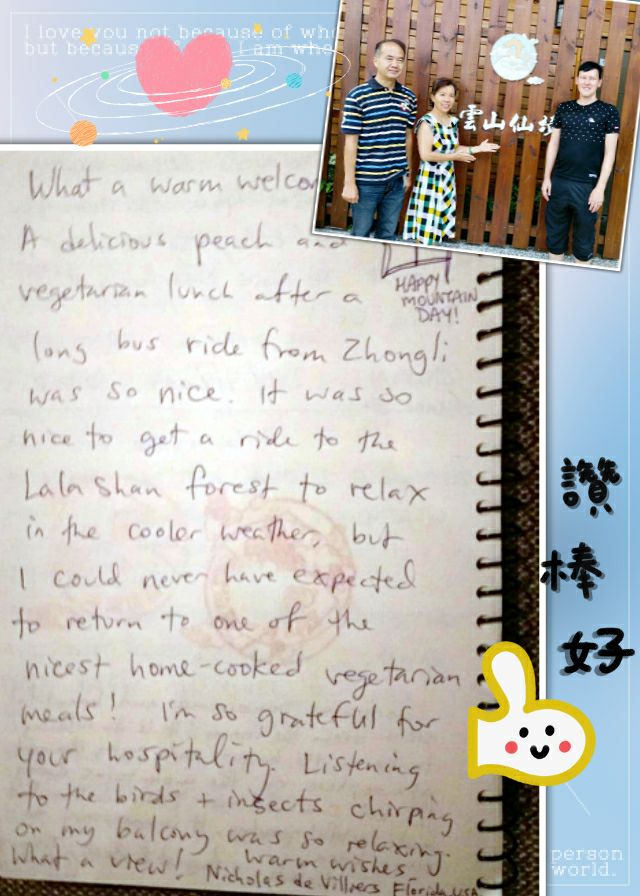 I love you not because of who
but because I am who
雲山仙
What a warm welcom
A delicious peach and
vegetarian lunch after a
HAPPY
MOUNTAIN
DAY!
long bus ride from Zhongli
was so nice. It was so
nice to get a ride to the
Lala Shan forest to relax
in the cooler weather, but
I could never have expected
to return to one of the
nicest home-cooked vegetarian
meals! I'm so grateful for
your hospitality. Listening
to the birds + insects chirping
on my balcony was so relaxing.
What a view! Warm wishes
Nicholas de Villiers Florida USA
讚
棒
好
person
world.